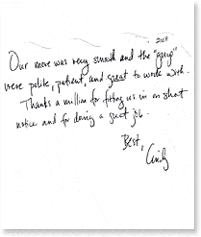 Our move was very smooth and the "gang"
were polite, patient, and great to work with.
Thanks a million for fitting us in on short
notice and for doing a great job.
Best,
Cindy